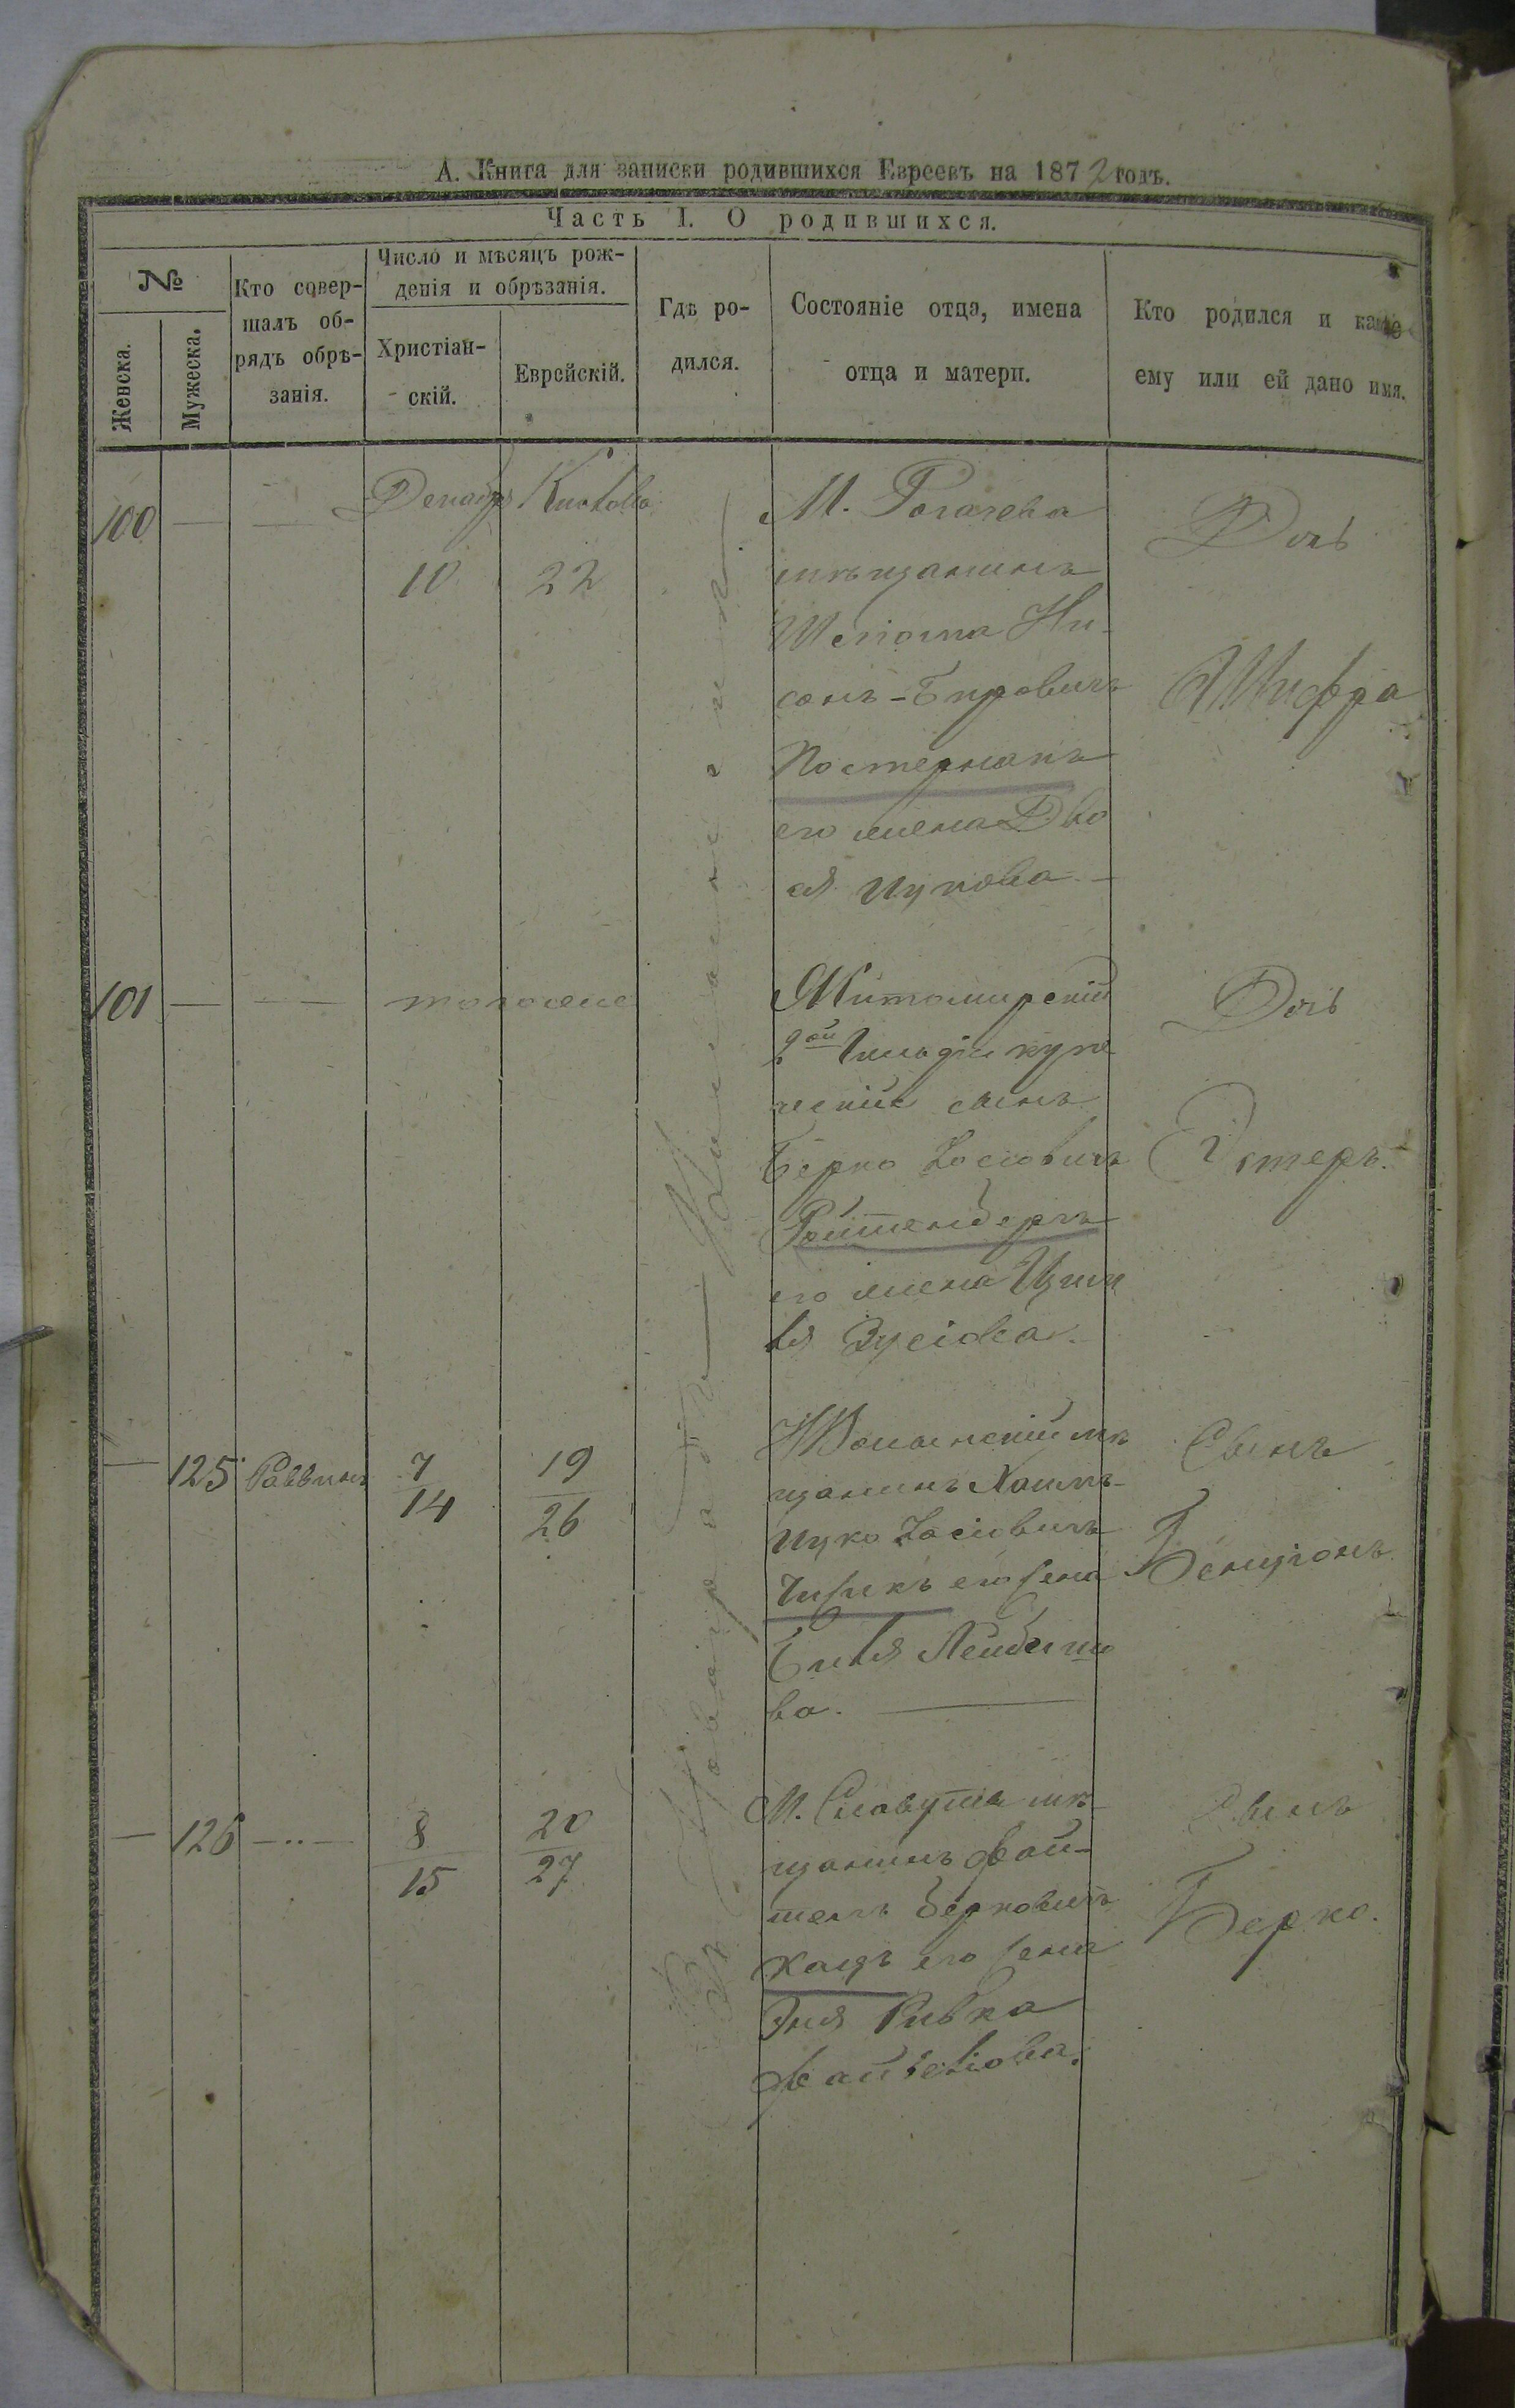 А. Книга для записки родившихся Евреевъ на 1872 годъ.
Часть I. О родившихся.
№
Женска.
Мужеска.
Кто совер-
шалъ об-
рядъ обрѣ-
занія.
Число и мѣсяцъ рож-
денія и обрѣзанія.
Христіан-
скій.
Еврейскій.
Гдѣ ро-
дился.
Состояніе отца, имена
отца и матери.
Кто родился и какое
ему или ей дано имя.
100 — —
Декабр
10
22
М. Рогачева
мѣщанинъ
Ни-
сонъ-Беровичъ
Постернакъ
его жена Дво
ся Ицкова
Дочь
Шифра
101 — —
тогоже
Житомирскій
2ой Гильдіи купе
ческій сынъ
Берко Іосіовичъ
Ройтенбергъ
его жена
Зусіова.
Дочь
Эстеръ.
— 125 Раввинъ
7
14
19
26
мѣ
щанинъ Хаимъ-
Ицко Іосіовичъ
его жена
Лейбишо
ва.
Сынъ
Бенціонъ
— 126 —„—
8
15
20
27
М. Славута мѣ-
щанинъ Фай-
Берковичъ
Кацъ его жена
Эня Ривка
Сынъ
Берко.